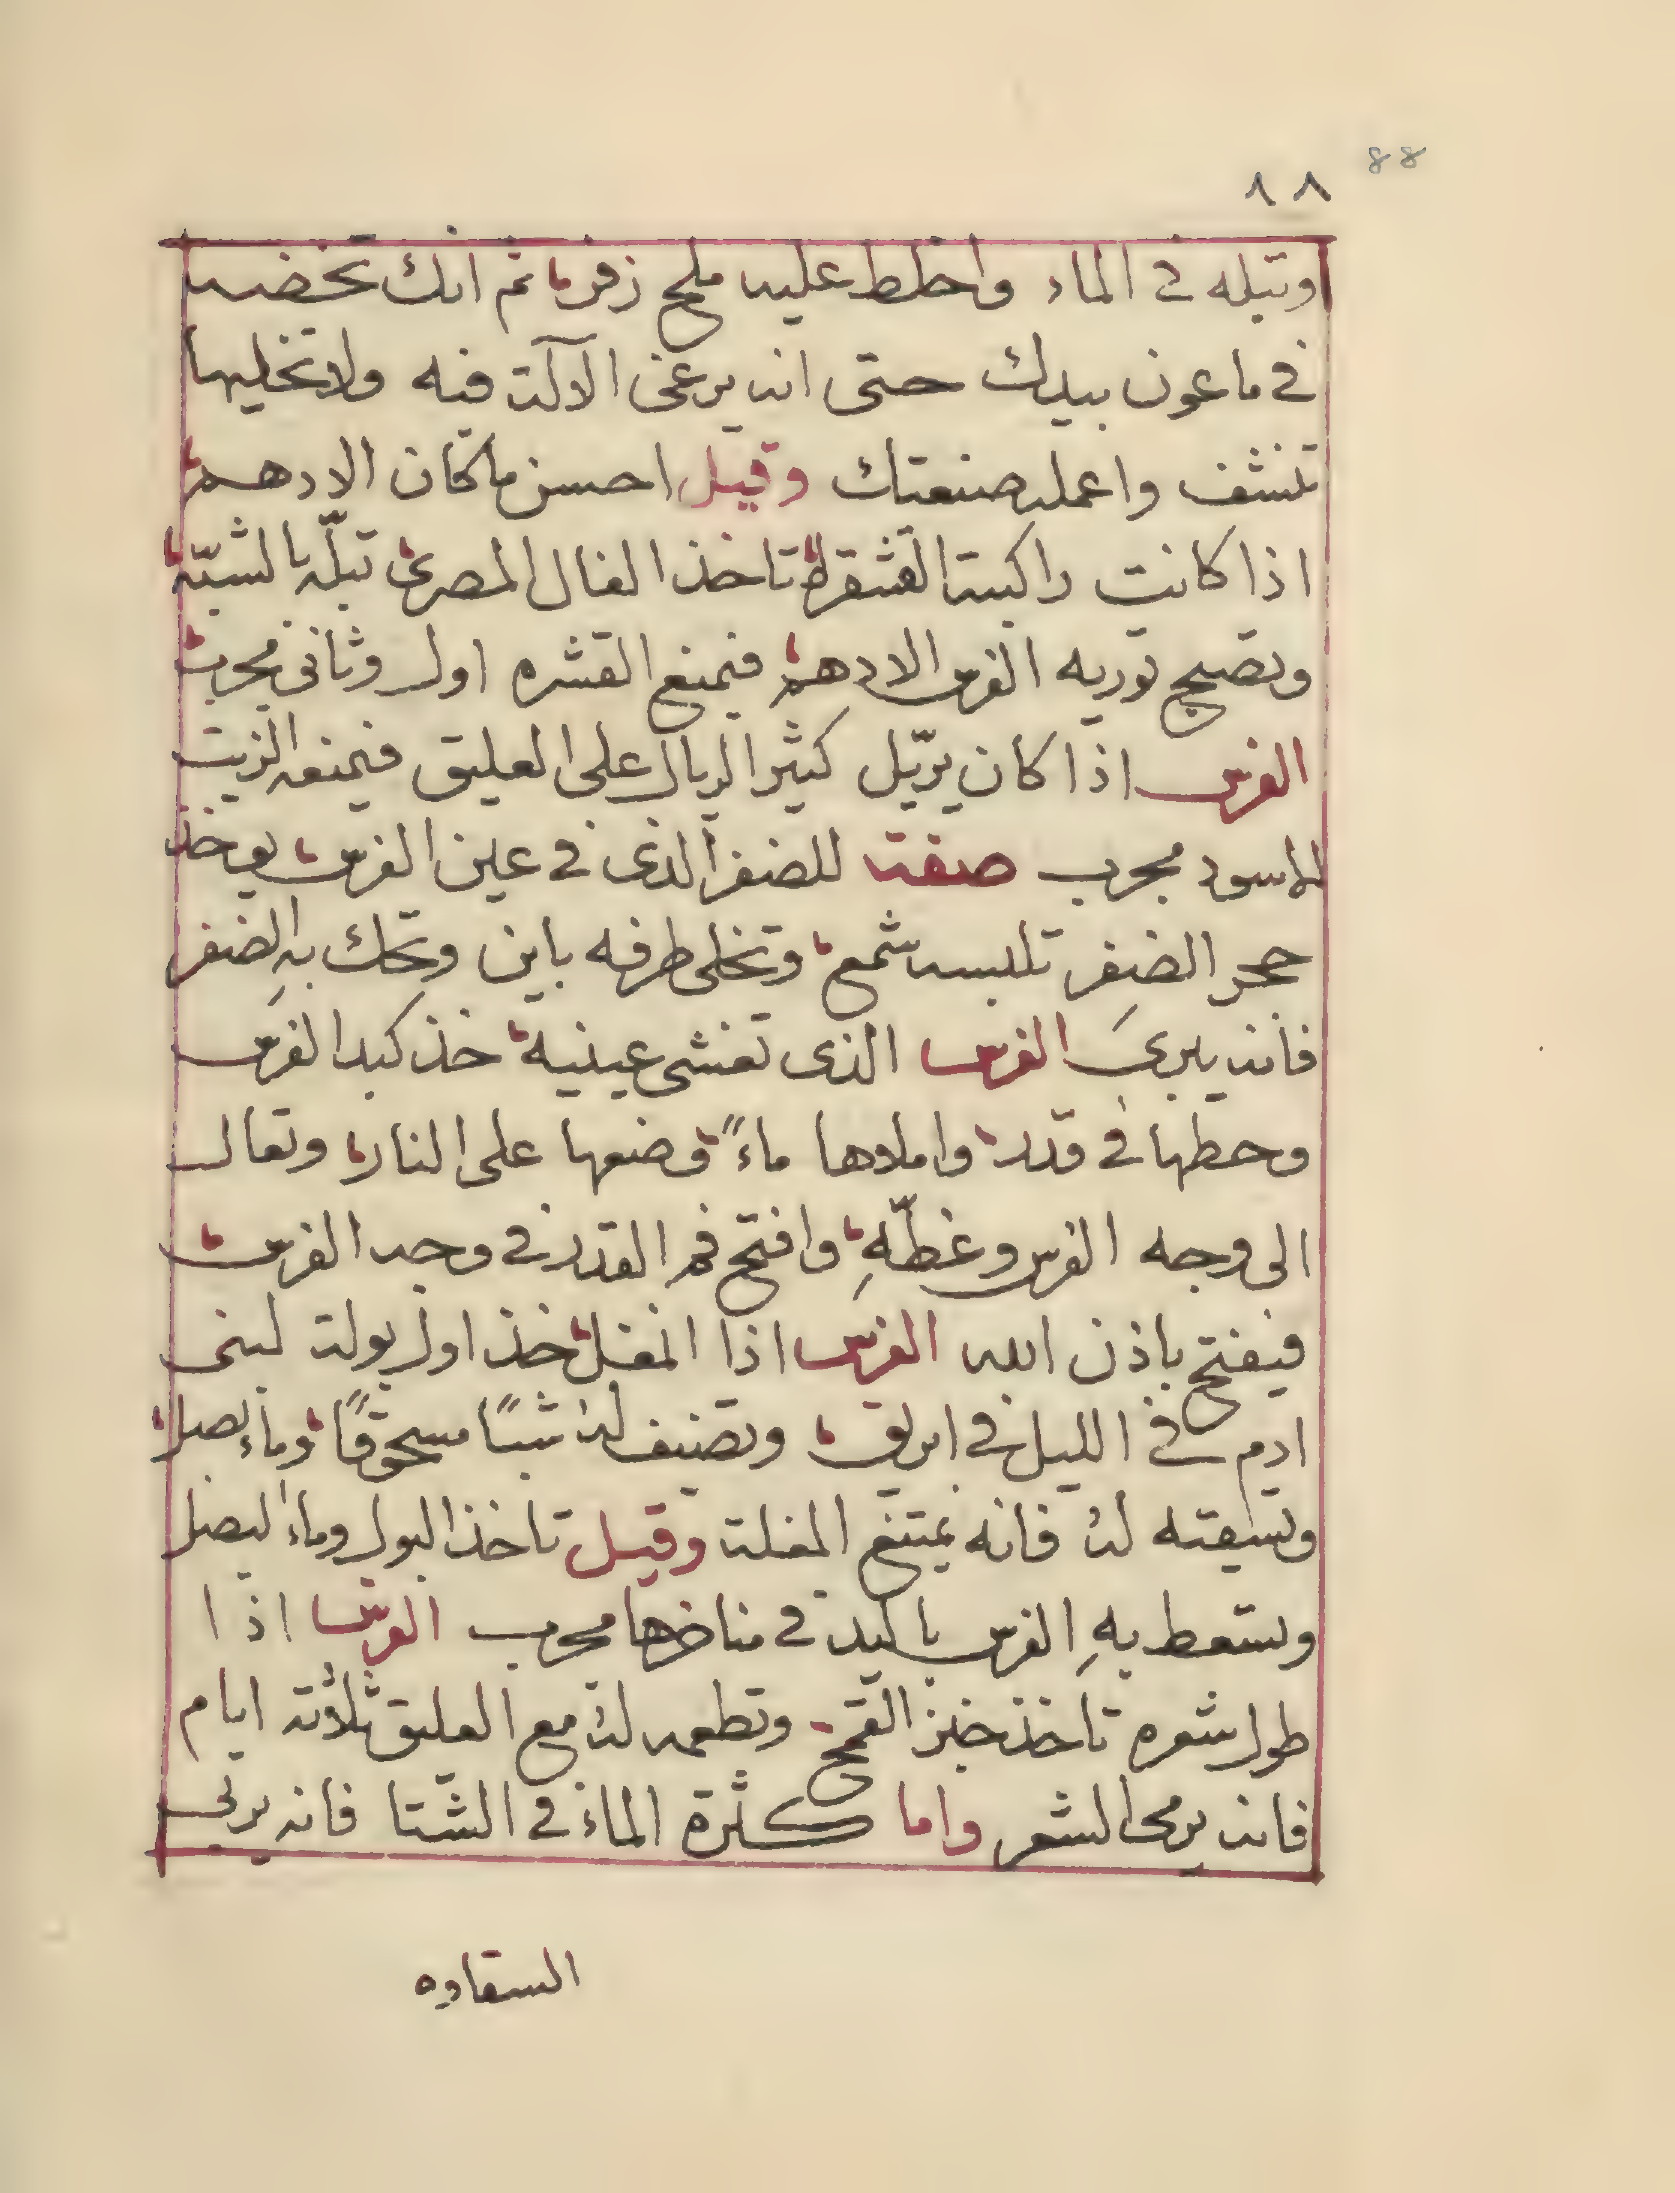 88
٨٨
وتبله في الماء واحطط عليه ملح زفر ثم انك تخضه
في ماعون بيدك حتى انه يرغى الآلة فيه ولا تخليها
تنشف واعمله صنعتك وقيل احسن ما كان الادهم
اذا كانت راكبته القشرة تاخذ الفال المصرى تبلّه بالشبّه
وتصبح توريه الفرس الادهم فيمنع القشره اول وثانى مجرب
الفرس اذا كان يريّل كثير الريال على العليق فيمنعه الزيت
الاسود مجرب صفت للضفر الذى في عين الفرس يوخذ
حجر الضفر تلبسه شمع وتخلى طرفه باين وتحك بهِ الضفر
فانه يبرىَ الفرس الذى تغشى عينيه خذ كبد الفرس
وحطها في قدر واملاوها ماءً وضعها على النار وتعال
الى وجه الفرس وغطّهِ وافتح فم القدر في وجه الفرس
فيفتح باذن الله الفرس اذا انمغل خذ اول بولة لبنى
ادم في الليل في ابريق وتضيف له شبًا مسحوقًا وماء بصل
وتسيقته له فانه يمتنع المغلة وقيل تاخذ البول وماء البصل
وتسعط بهِ الفرس باكيد في مناخرها مجرب الفرس اذا
طول شعره تاخذ خبز القمح وتطعمه له مع العليق ثلاثة ايام
فانه يرمى الشعر واما كثرة الماء في الشتا فانه يربى
السقاوه